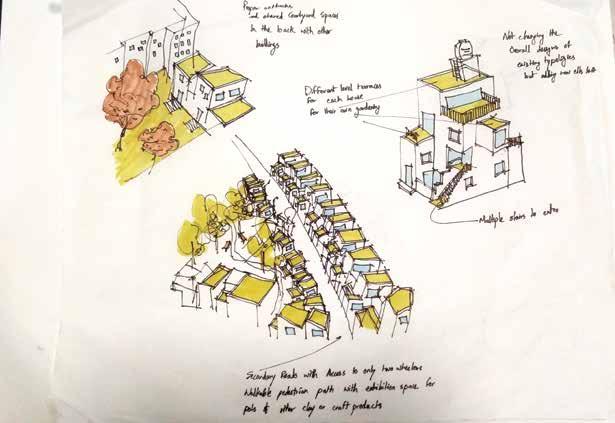 Proper
and shared Courtyard Spaces
In the back with other
buildings
Not changing the
Overall designs of
existing typologies
but adding new
Different level terraces
for each house
for their own gardening
Multiple stairs to enter
Secondary Roads with Access to only two wheelers
Walkable pedestrian path with exhibition space for
pots & other clay or craft products